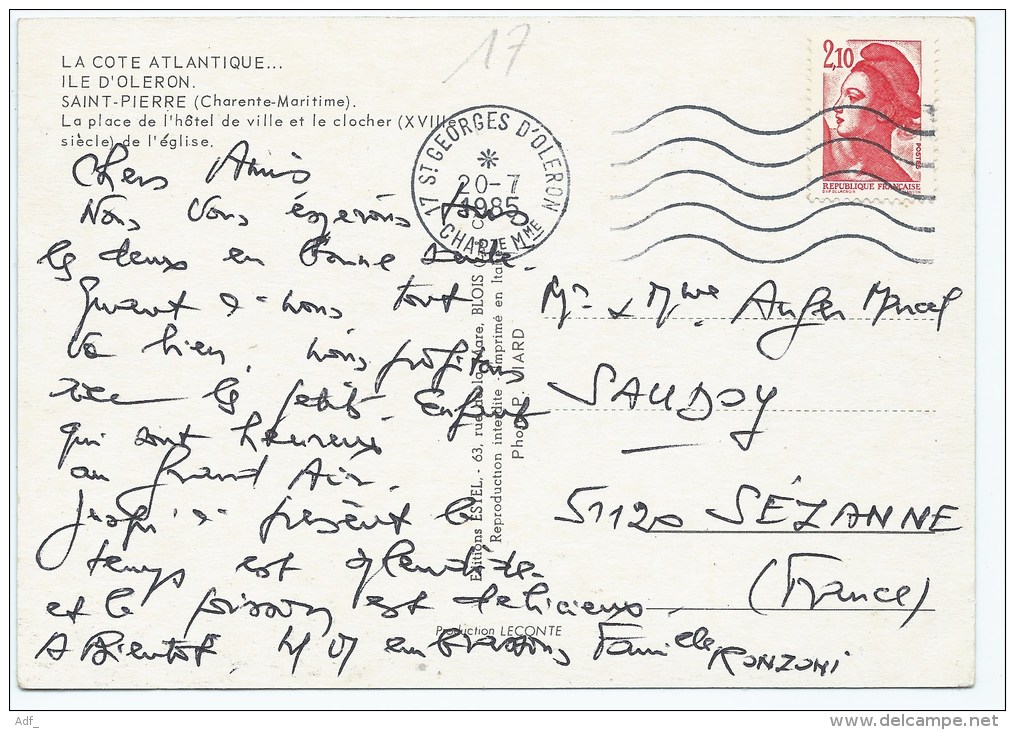 17
LA COTE ATLANTIQUE...
ILE D'OLERON.
SAINT-PIERRE (Charente-Maritime).
La place de l'hôtel de ville et le clocher (XVIIIe
siècle) de l'église.
2,10
POSTES
REPUBLIQUE FRANÇAISE
17 St GEORGES D'OLERON
*
20-7
1985
CHARTE MME
Chers Amis
Nous Vous espérons tous
les deux en bonne santé.
Quant à nous tout
va bien, nous profitons
avec les petits Enfants
qui sont heureux
au Grand Air.
Jusqu'à présent le
temps est splendide
et le poisson est délicieux.
A Bientôt N V embrassons Famille RONZONI
Editions ESTEL, - 63, rue de la Mare, BLOIS
Reproduction interdite - Imprimé en Ital
Photo P. VIARD
Production LECONTE
Mr & Mme Anger Marcel
SAUDOY
51120 SÉZANNE
(France)
Adf_
delcampe.net